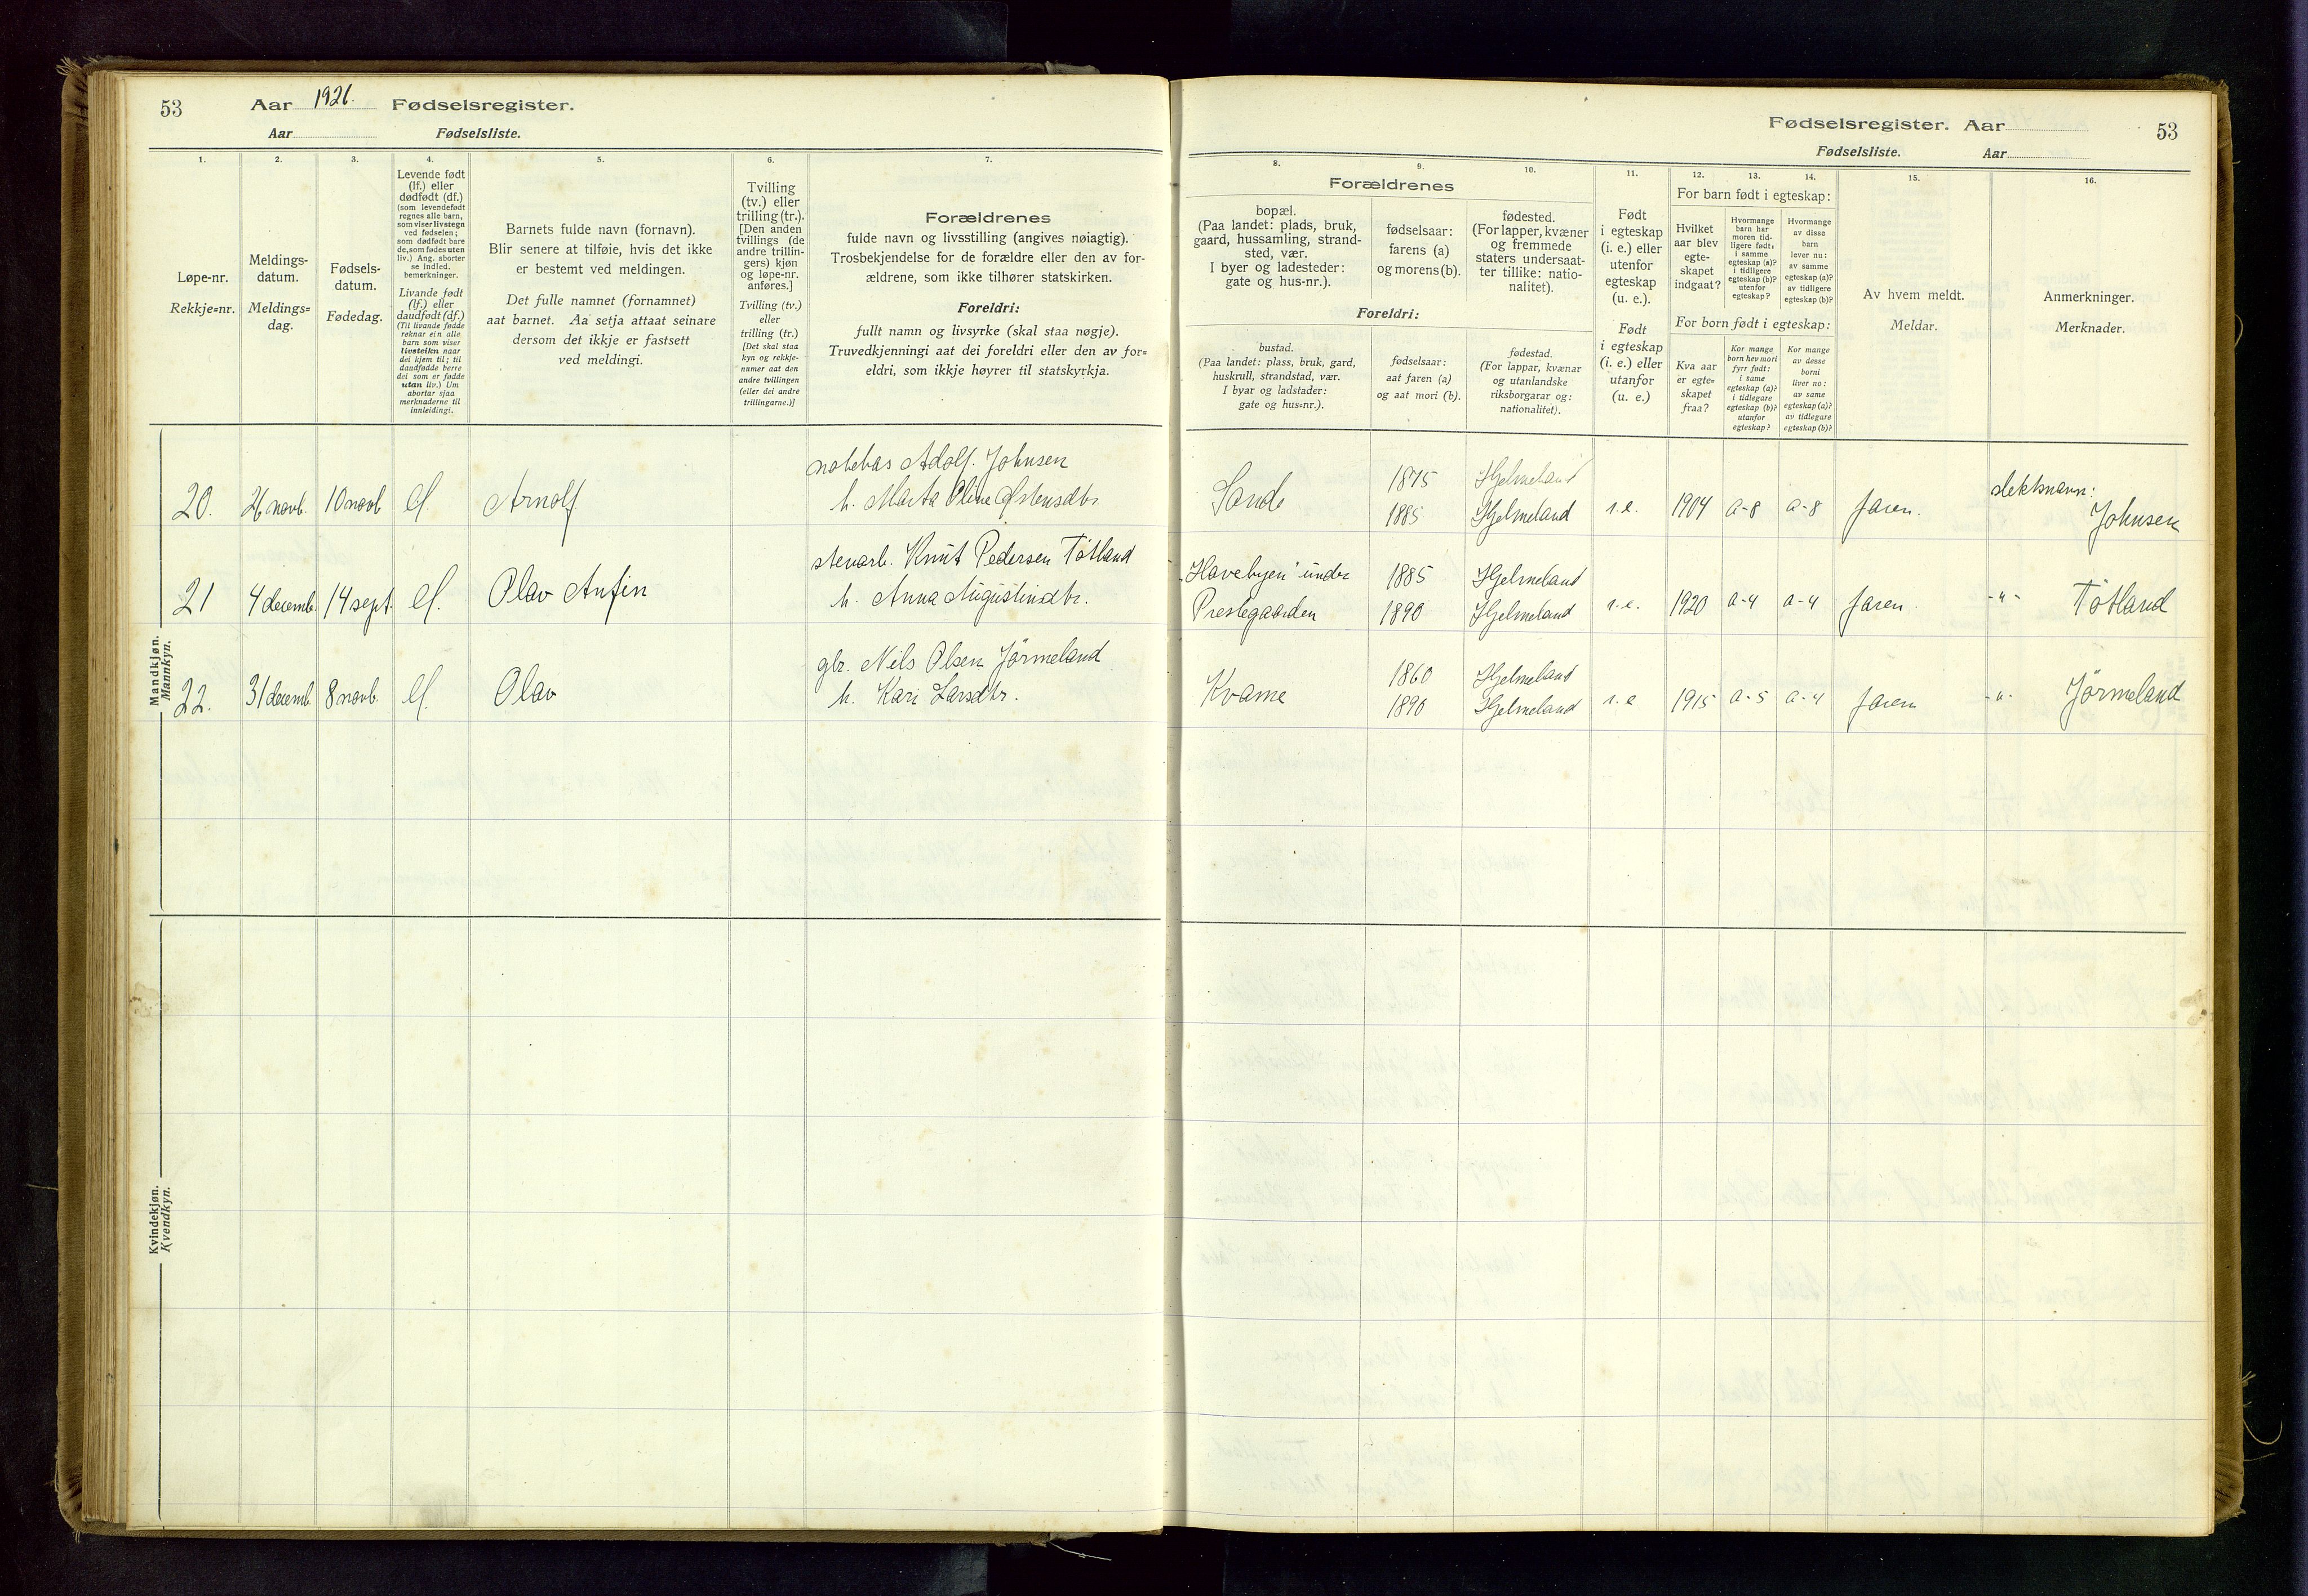 53 Aar 1926. Fødselsregister.
Aar Fødselsliste.
1. 2. 3. 4. 5. 6. 7.
Løpe-nr.
Rekkje=nr.
Meldings-
datum.
Meldings=
dag.
Fødsels-
datum.
Fødedag.
Levende født
(lf.) eller
dødfødt (df.)
(som levendefødt
regnes alle barn,
som viser livstegn
ved fødselen;
som dødfødt bare
de, som fødes uten
liv.) Ang. aborter
se indled.
bemerkninger.
Livande født
(lf.) eller
daudfødt (df.)
(Til livande fødde
reknar ein alle
barn som viser
livsteikn naar
dei kjem til; til
daudfødde berre
dei som er fødde
utan liv.) Um
abortar sjaa
merknaderne til
innleidingi.
Barnets fulde navn (fornavn).
Blir senere at tilføie, hvis det ikke
er bestemt ved meldingen.
Det fulle namnet (fornamnet)
aat barnet. Aa setja attaat seinare
dersom det ikkje er fastsett
ved meldingi.
Tvilling
(tv.) eller
trilling (tr.).
[Den anden
tvillings (de
andre trillin-
gers) kjøn
og løpe-nr.
anføres.]
Tvilling (tv.)
eller
trilling (tr.)
[Det skal staa
kyn og rekkje-
numer aat den
andre tvillingen
(eller dei andre
trillingarne.)]
Forældrenes
fulde navn og livsstilling (angives nøiagtig).
Trosbekjendelse for de forældre eller den av for-
ældrene, som ikke tilhører statskirken.
Foreldri:
fullt namn og livsyrke (skal staa nøgje).
Truvedkjenningi aat dei foreldri eller den av for=
eldri, som ikkje høyrer til statskyrkja.
Mandkjøn.
Mannkyn.
20. 26 novb. 10 novb lf. Arnolf
notebas Adolf. Johnsen
h. Marta Oline Østensdtr.
21 4 decemb. 14 sept. lf. Olav Anfin
stenarb. Knut Pedersen Tøtland
h. Anna Augustinsdtr.
22. 31 decemb. 8 novb. lf. Olav
gbr. Nils Olsen Jörmeland
h. Kari Larsdtr.
Kvindekjøn.
Kvendkyn.
Fødselsregister. Aar 53
Fødselsliste. Aar
8. 9. 10. 11. 12. 13. 14. 15. 16.
Forældrenes
bopæl.
(Paa landet: plads, bruk,
gaard, hussamling, strand-
sted, vær.
I byer og ladesteder:
gate og hus-nr.).
fødselsaar:
farens (a)
og morens (b).
fødested.
(For lapper, kvæner
og fremmede
staters undersaat-
ter tillike: natio-
nalitet).
Foreldri:
bustad.
(Paa landet: plass, bruk, gard,
huskrull, strandstad, vær.
I byar og ladstader:
gate og hus=nr.).
fødselsaar:
aat faren (a)
og aat mori (b).
fødestad.
(For lappar, kvænar
og utanlandske
riksborgarar og:
nationalitet).
Født
i egteskap
(i. e.) eller
utenfor
egteskap
(u. e.).
Født
i egteskap
(i. e.) eller
utanfor
(u. e.)
For barn født i egteskap:
Hvilket
aar blev
egte-
skapet
indgaat?
Hvormange
barn har
moren tid-
ligere født:
i samme
egteskap (a)?
i tidligere
egteskap (b)?
utenfor
egteskap?
Hvormange
av disse
barn
lever nu:
av samme
egteskap (a)?
av tidligere
egteskap (b)?
For born født i egteskap:
Kva aar
er egte=
skapet
fraa?
Kor mange
born hev mori
fyrr født:
i same
egteskap (a)?
i tidlegare
egteskap (b)?
utanfor
egteskap?
Kor mange
av desse
borni
liver no:
av same
egteskap (a)?
av tidlegare
egteskap (b)?
Av hvem meldt.
Meldar.
Anmerkninger.
Merknader.
Sande 1875 Hjelmeland
1885 Hjelmeland i.e. 1904 a-8 a-8 faren. slektsnavn:
Johnsen
"Havebyen" under 1885 Hjelmeland
Prestegaarden 1890 Hjelmeland i.e. 1920 a-4 a-4 faren. -"- Tøtland
Kvame 1860 Hjelmeland
1890 Hjelmeland i.e 1915 a-5 a-4 faren -"- Jörmeland